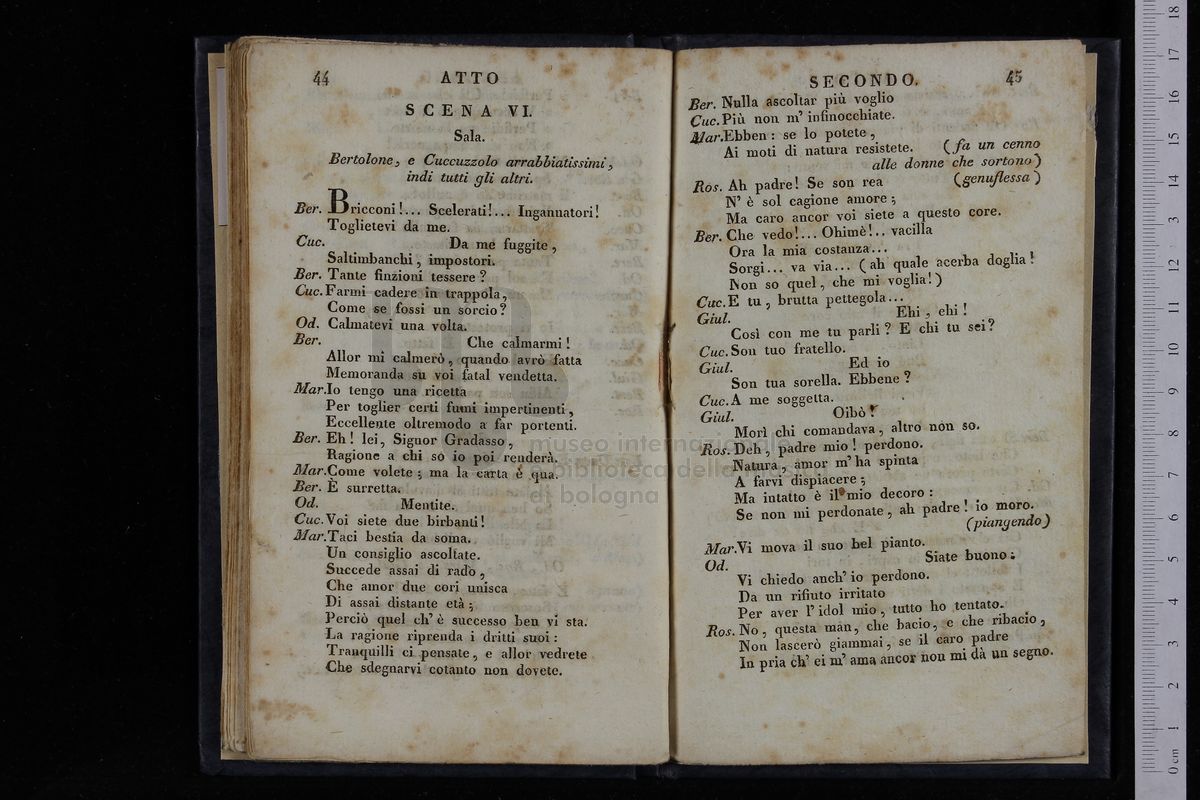 44 ATTO
SCENA VI.
Sala.
Bertolone, e Cuccuzzolo arrabbiatissimi,
indi tutti gli altri.
Ber. Bricconi!... Scelerati!... Ingannatori!
Toglietevi da me.
Cuc. Da me fuggite,
Saltimbanchi, impostori.
Ber. Tante finzioni tessere?
Cuc. Farmi cadere in trappola,
Come se fossi un sorcio?
Od. Calmatevi una volta.
Ber. Che calmarmi!
Allor mi calmerò, quando avrò fatta
Memoranda su voi fatal vendetta.
Mar. Io tengo una ricetta
Per toglier certi fumi impertinenti,
Eccellente oltremodo a far portenti.
Ber. Eh! lei, Signor Gradasso,
Ragione a chi so io poi renderà.
Mar. Come volete; ma la carta è qua.
Ber. È surretta.
Od. Mentite.
Cuc. Voi siete due birbanti!
Mar. Taci bestia da soma.
Un consiglio ascoltate.
Succede assai di rado,
Che amor due cori unisca
Di assai distante età;
Perciò quel ch' è successo ben vi sta.
La ragione riprenda i dritti suoi:
Tranquilli ci pensate, e allor vedrete
Che sdegnarvi cotanto non dovete.
SECONDO. 45
Ber. Nulla ascoltar più voglio
Cuc. Più non m' infinocchiate.
Mar. Ebben: se lo potete,
Ai moti di natura resistete. (fa un cenno
alle donne che sortono)
Ros. Ah padre! Se son rea (genuflessa)
N' è sol cagione amore;
Ma caro ancor voi siete a questo core.
Ber. Che vedo!... Ohimè!.. vacilla
Ora la mia costanza...
Sorgi... va via... (ah quale acerba doglia!
Non so quel, che mi voglia!)
Cuc. E tu, brutta pettegola...
Giul. Ehi, ehi!
Così con me tu parli? E chi tu sei?
Cuc. Son tuo fratello.
Giul. Ed io
Son tua sorella. Ebbene?
Cuc. A me soggetta.
Giul. Oibò!
Morì chi comandava, altro non so.
Ros. Deh, padre mio! perdono.
Natura, amor m' ha spinta
A farvi dispiacere;
Ma intatto è il mio decoro:
Se non mi perdonate, ah padre! io moro.
(piangendo)
Mar. Vi mova il suo bel pianto.
Od. Siate buono:
Vi chiedo anch' io perdono.
Da un rifiuto irritato
Per aver l' idol mio, tutto ho tentato.
Ros. No, questa man, che bacio, e che ribacio,
Non lascerò giammai, se il caro padre
In pria ch' ei m' ama ancor non mi dà un segno.
museo internazionale
e biblioteca della musica
di bologna
0 cm 1 2 3 4 5 6 7 8 9 10 11 12 13 14 15 16 17 18